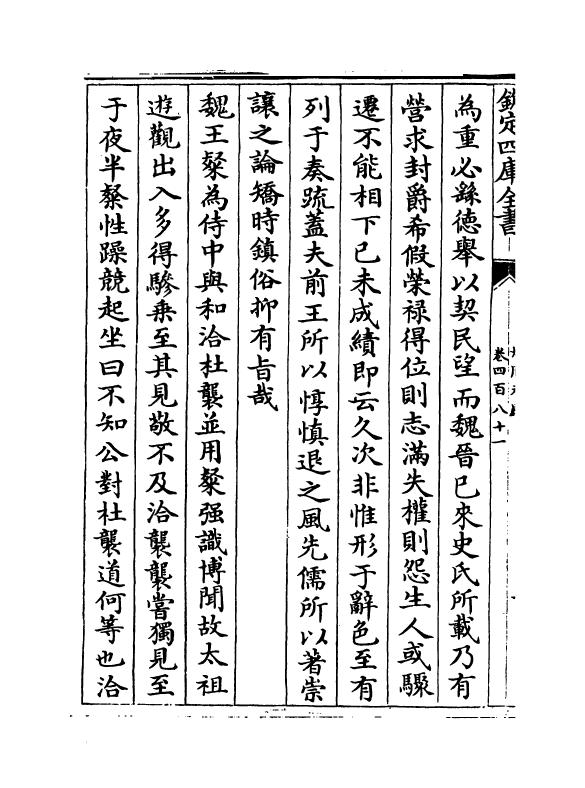 欽定四庫全書
卷四百八十一
為重必繇徳舉以契民望而魏晉已來史氏所載乃有
營求封爵希假榮禄得位則志滿失權則怨生人或驟
遷不能相下已未成績即云久次非惟形于辭色至有
列于奏疏蓋夫前王所以惇慎退之風先儒所以著崇
讓之論矯時鎮俗抑有旨哉
魏王粲為侍中與和洽杜襲並用粲强識博聞故太祖
遊觀出入多得驂乗至其見敬不及洽襲襲嘗獨見至
于夜半粲性躁競起坐曰不知公對杜襲道何等也洽